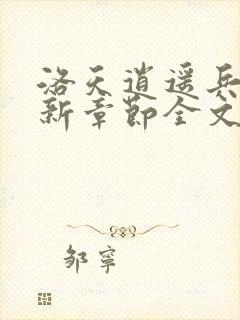 洛天逍遥兵
新章节全文
邹宁